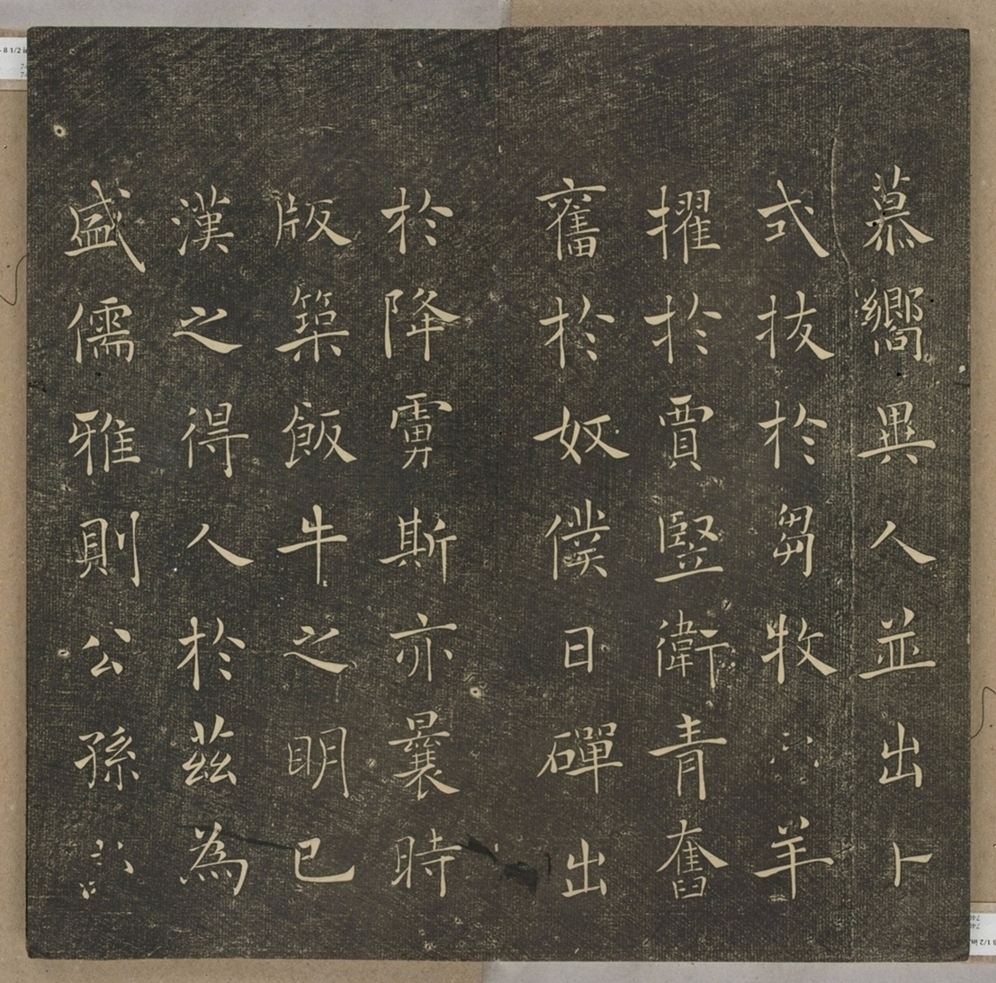 慕嚮異人並出卜
式拔於芻牧羊
擢於賈竪衛青奮
奮於奴僕日磾出
於降虜斯亦曩時
版築飯牛之明已
漢之得人於茲為
盛儒雅則公孫
8 1/2 in
8 1/2 in